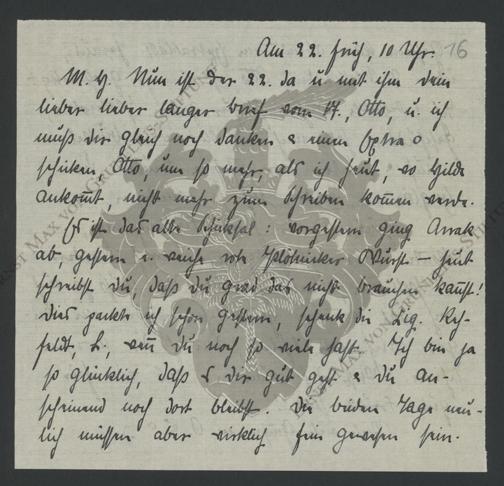 Am 22. früh, 10 Uhr. 16
M. H. Nun ist der 22. da u. mit ihm dein
lieber lieber langer Brief vom 17., Otto, u. ich
muß dir gleich noch danken & einen Extra
schicken, Otto, um so mehr, als ich heut, wo Hilde
ankom̅t, nicht mehr zum Schreiben kom̅en werde.
Es ist das alte Schicksal: vorgestern ging Arrak
ab, gestern e. rote Wurst – heut
schreibst du, daß du grad das nicht brauchen kannst!
Dies packte ich schon gestern, schenk die Zig.
feldt, L., wenn du noch so viele hast. Ich bin ja
so glücklich, daß es dir gut geht & du an-
scheinend noch dort bleibst. Die beiden Tage neu-
lich müssen aber wirklich fein gewesen sein.